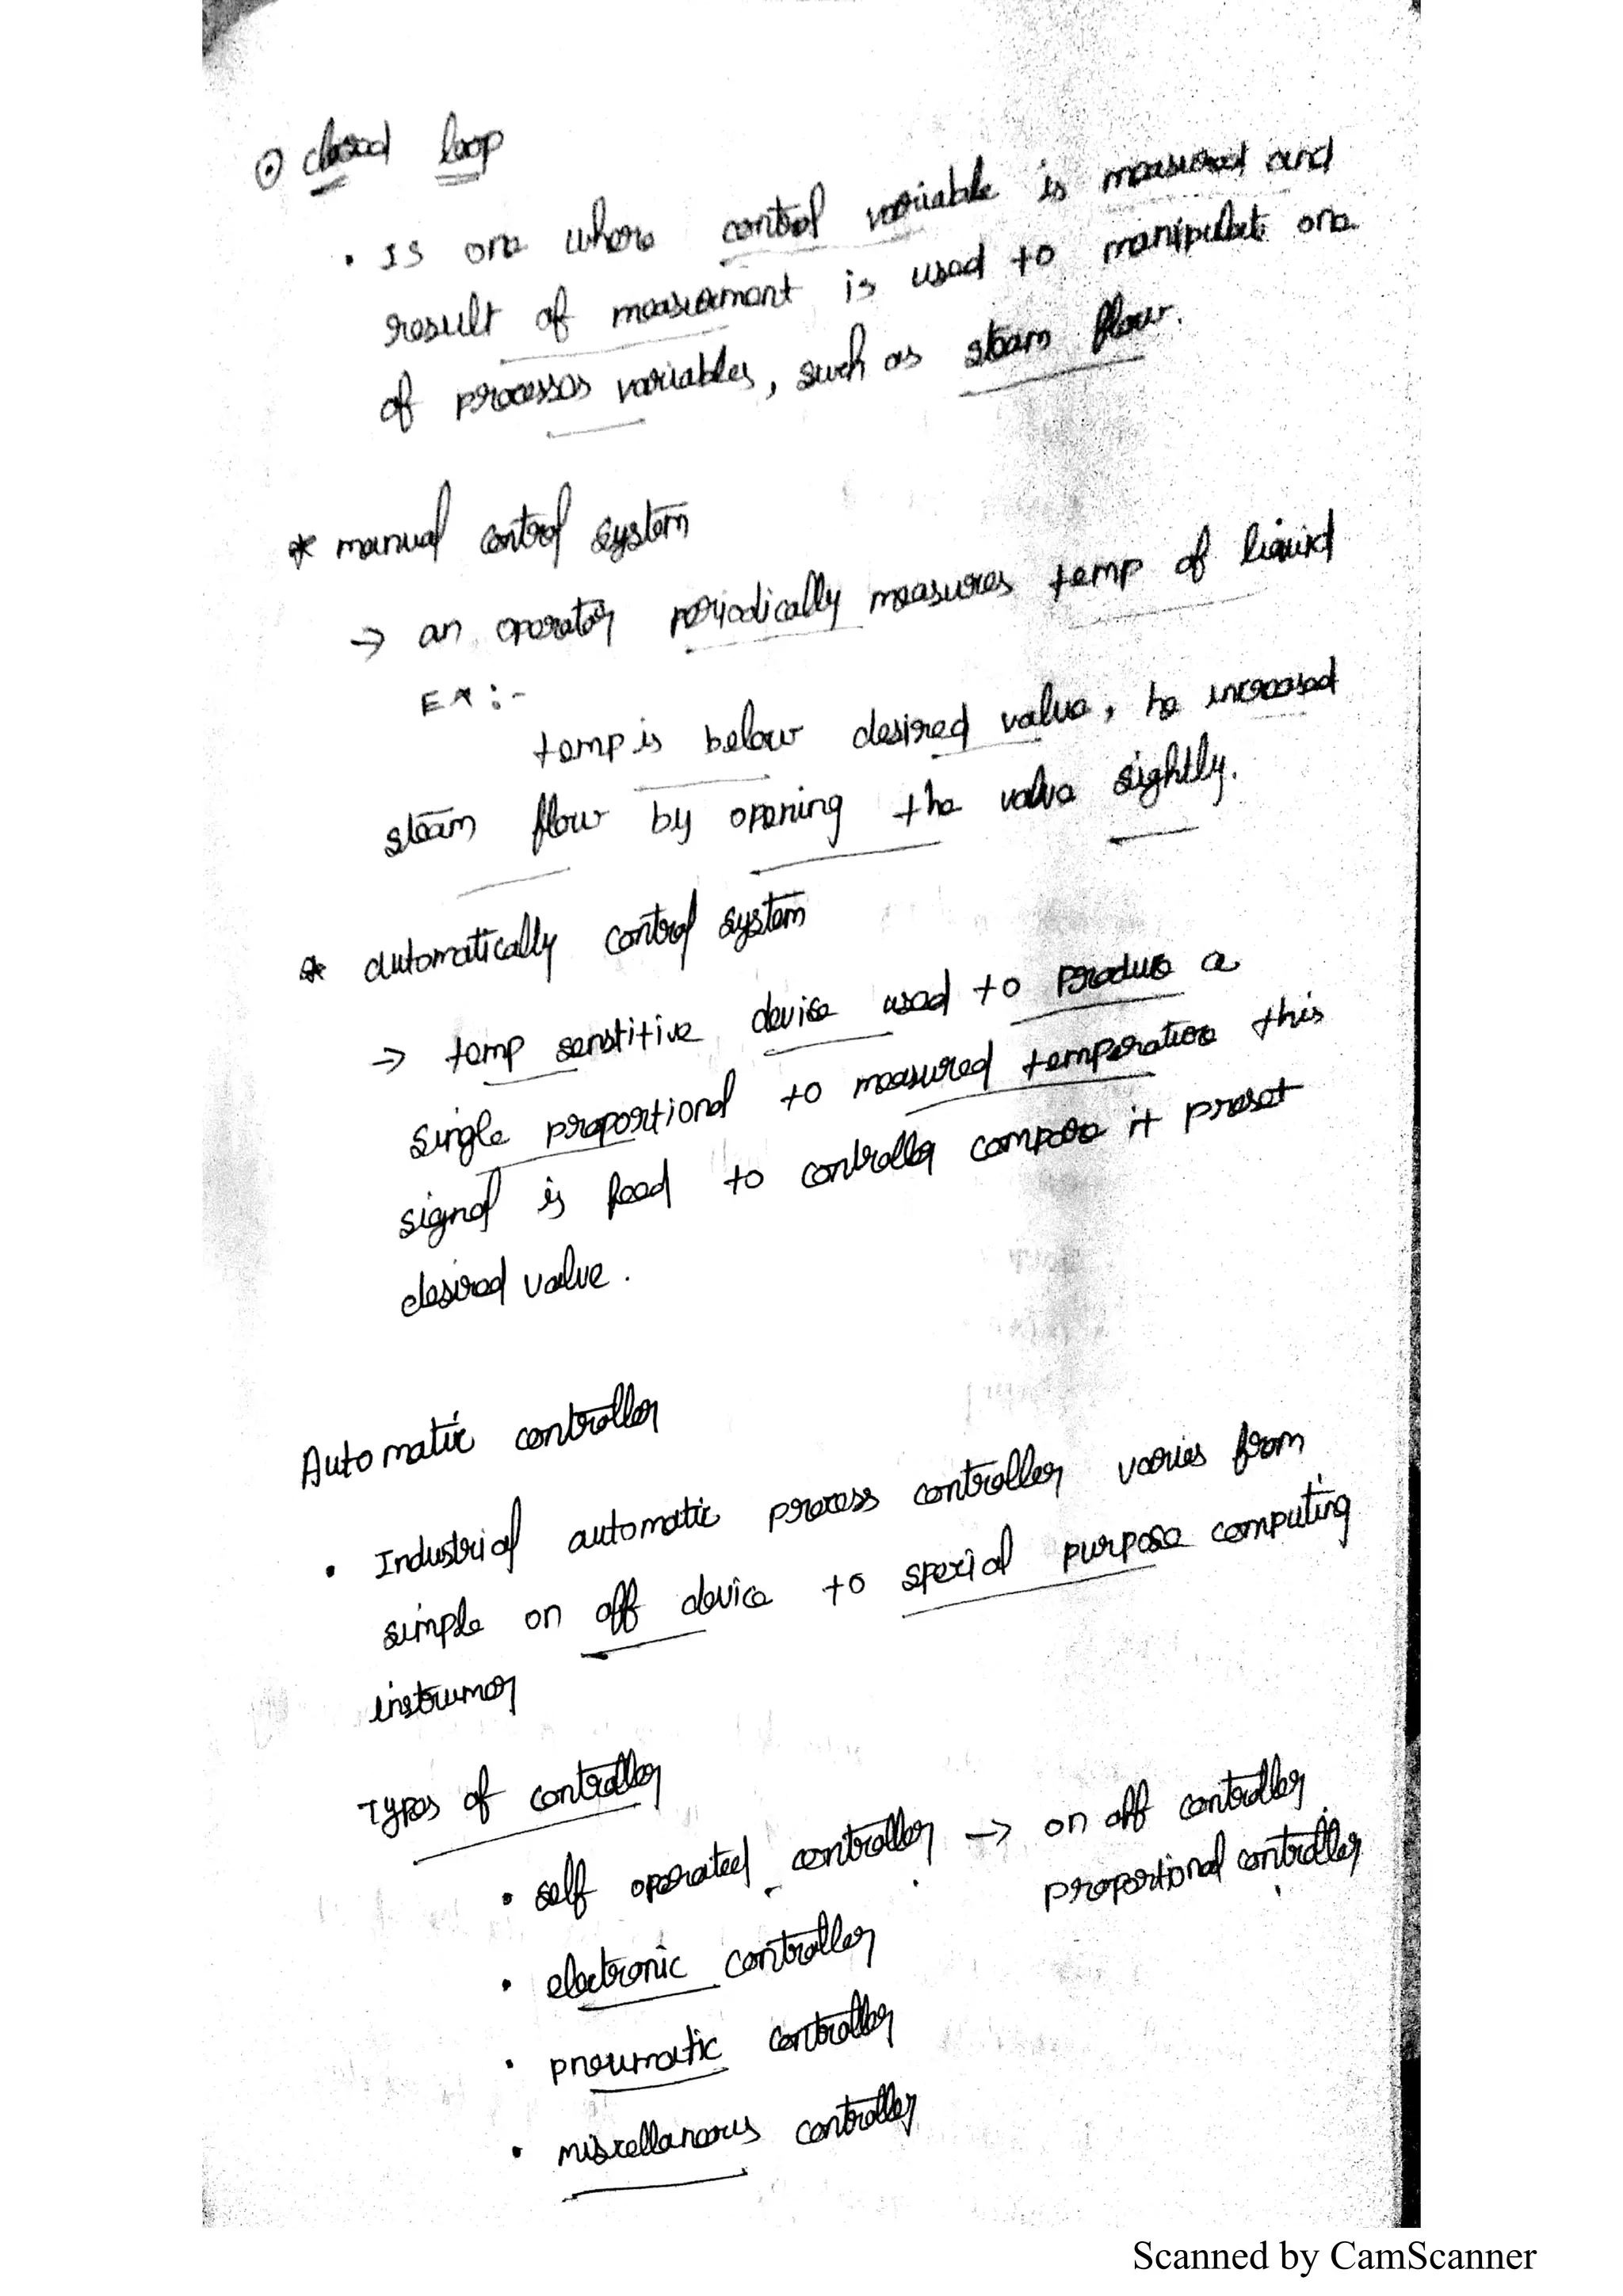 ⊙ closed loop
• Is one where control variable is measured and
result of measurement is used to manipulate one
of processes variables, such as steam flow.
* manual control system
→ an operator periodically measures temp of liquid
Ex :-
temp is below desired value, he increased
steam flow by opening the valve slightly.
* automatically control system
→ temp senstitive device used to produce a
single proportional to measured temperature this
signal is feed to controller compare it preset
desired value.
Automatic controller
• Industrial automatic process controller varies from
simple on off device to special purpose computing
instrumer
Types of controller
• self operated controller → on off controller
proportional controller
• electronic controller
• pneumatic controller
• miscellaneous controller
Scanned by CamScanner